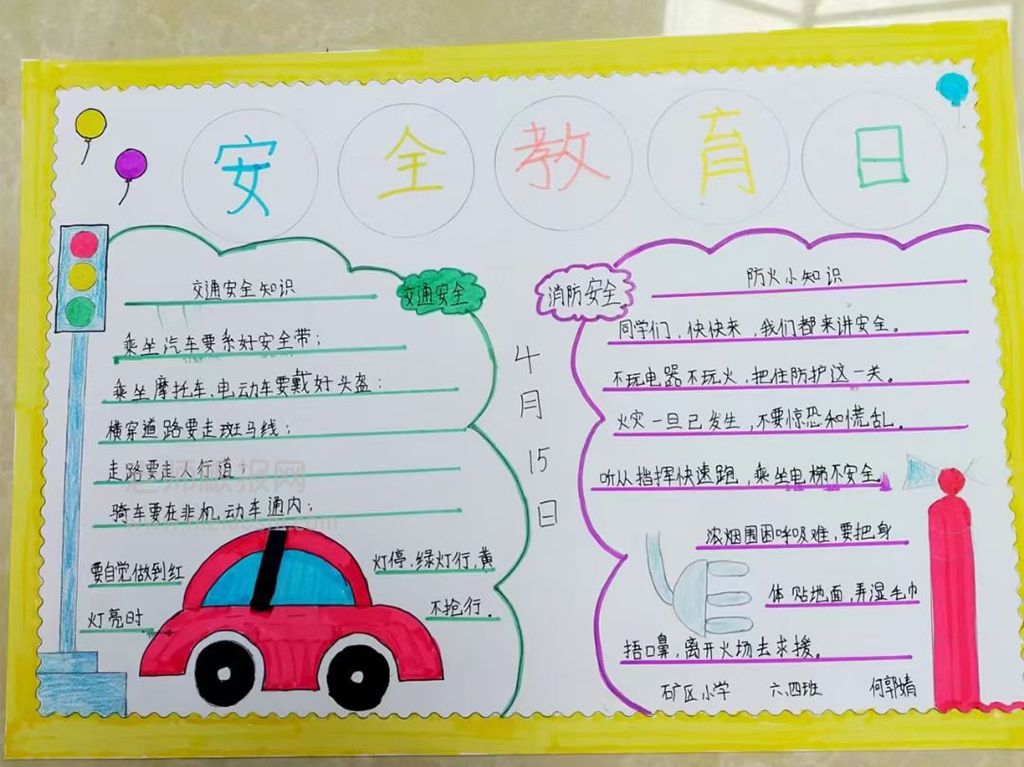 安全教育日
交通安全
交通安全知识
乘坐汽车要系好安全带；
乘坐摩托车、电动车要戴好头盔；
横穿道路要走斑马线；
走路要走人行道；
骑车要在非机动车通内；
要自觉做到红灯停,绿灯行,黄
灯亮时不抢行.
4月15日
消防安全
防火小知识
同学们，快快来，我们都来讲安全。
不玩电器不玩火，把住防护这一关。
火灾一旦已发生，不要惊恐和慌乱。
听从指挥快速跑，乘坐电梯不安全
浓烟围困呼吸难，要把身
体贴地面，弄湿毛巾
捂口鼻，离开火场去求援。
矿区小学 六.四班 何郭婧